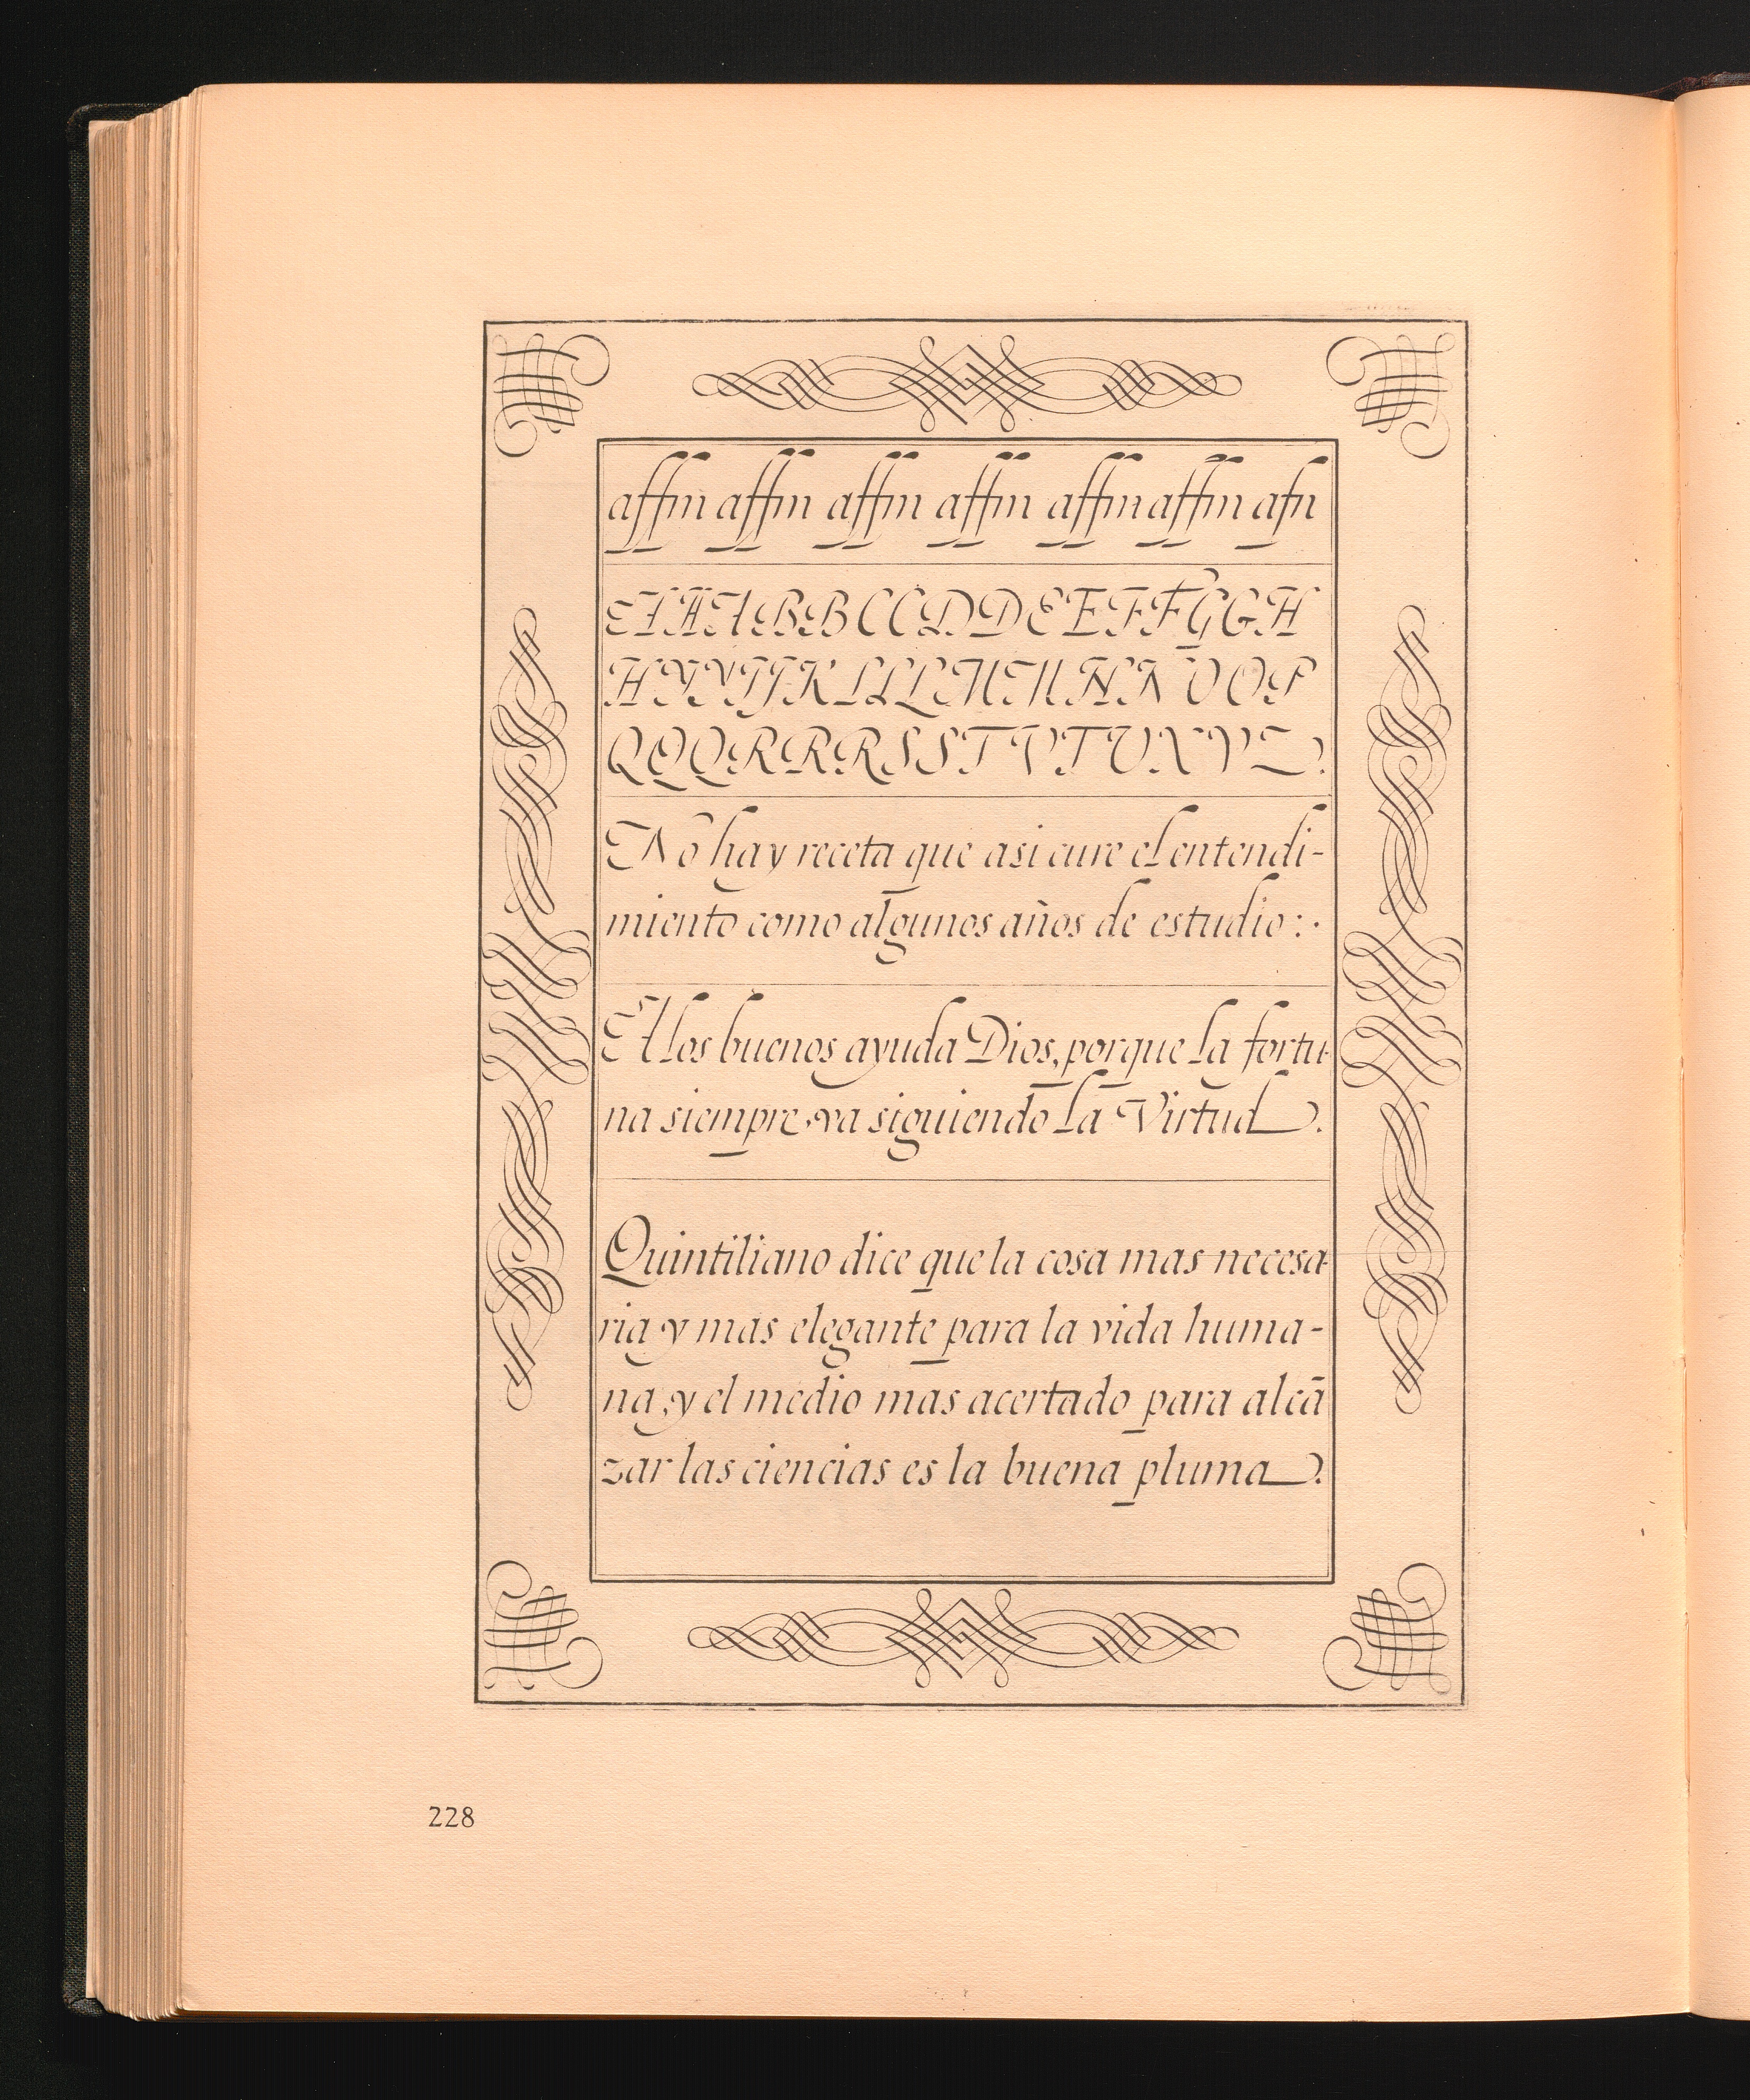 affin affin affin affin affin affin afn
A A A A B B C C D D E E F F G G H
H Y Y J J K L L L M M N N O O P
Q Q Q R R R S S T V T U X Y Z
No hay receta que asi cure el entendi-
miento como algunos años de estudio:·
A los buenos ayuda Dios, porque la fortu-
na siempre va siguiendo la Virtud.
Quintiliano dice que la cosa mas necesa-
ria y mas elegante para la vida huma-
na, y el medio mas acertado para alcā
zar las ciencias es la buena pluma.
228